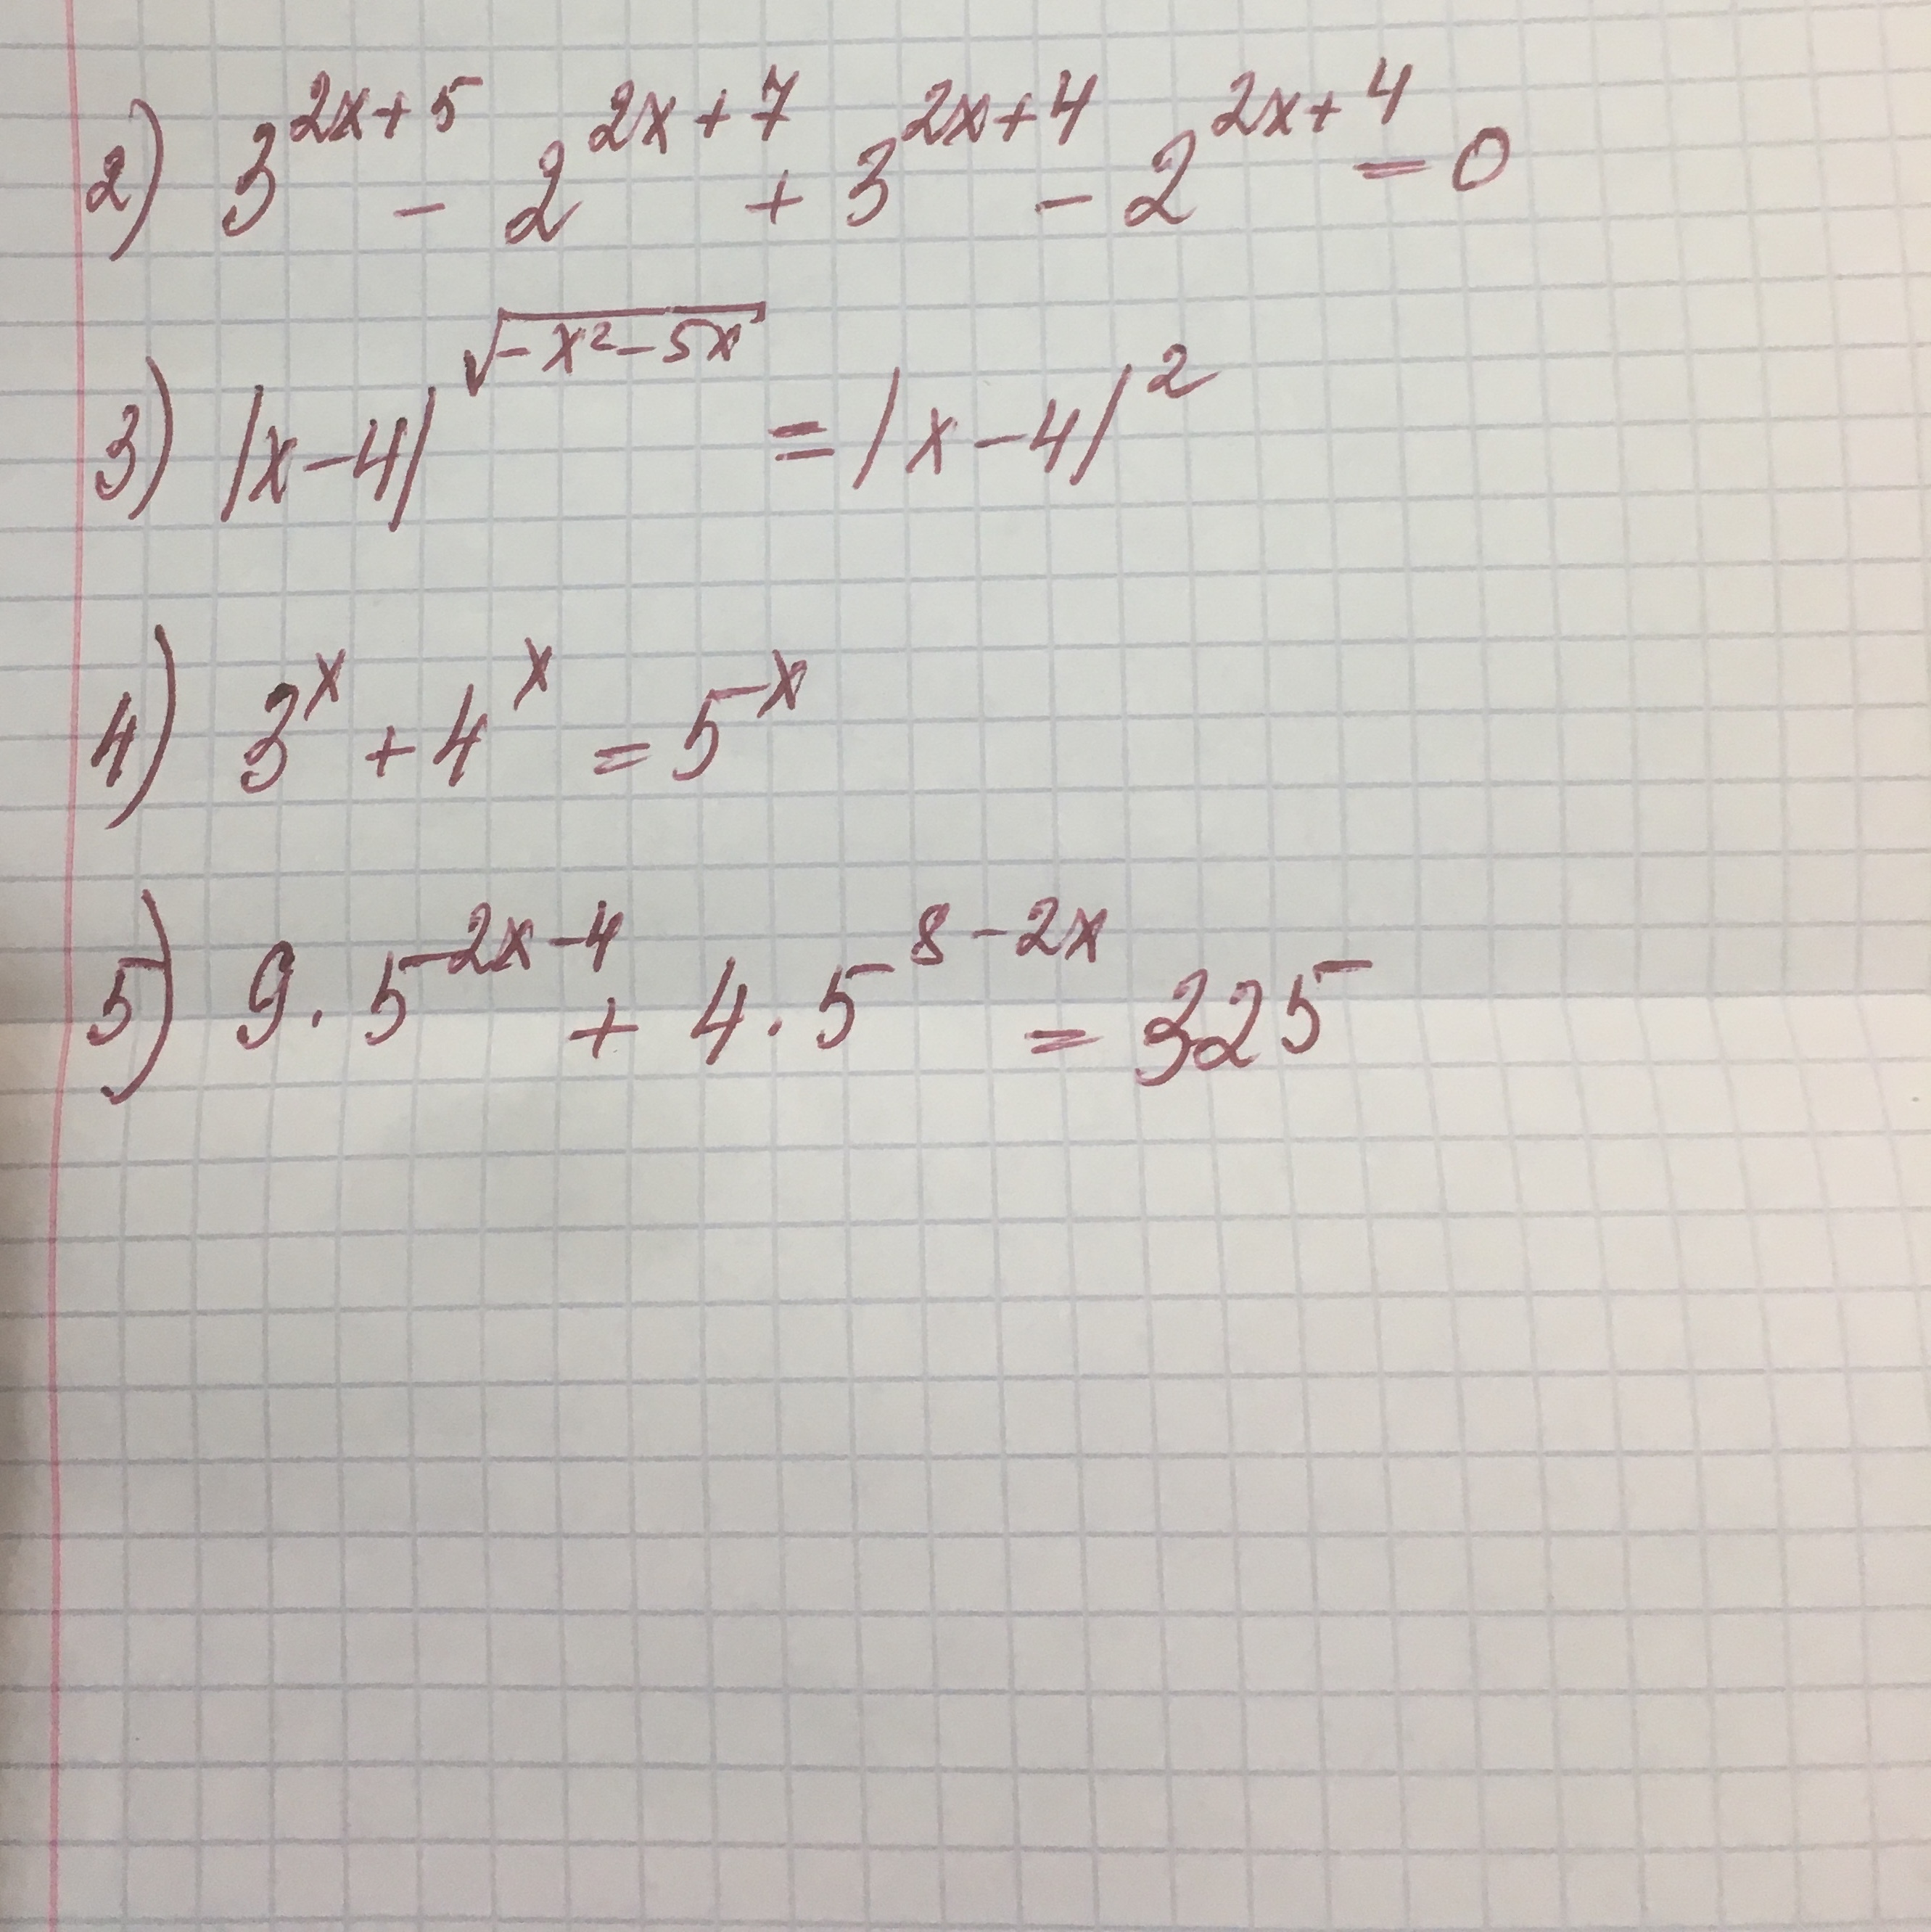 2) 3^{2x+5} - 2^{2x+7} + 3^{2x+4} - 2^{2x+4} = 0
3) |x-4|^{\sqrt{-x^2-5x}} = |x-4|^2
4) 3^x + 4^x = 5^x
5) 9 · 5^{2x-4} + 4 · 5^{8-2x} = 325